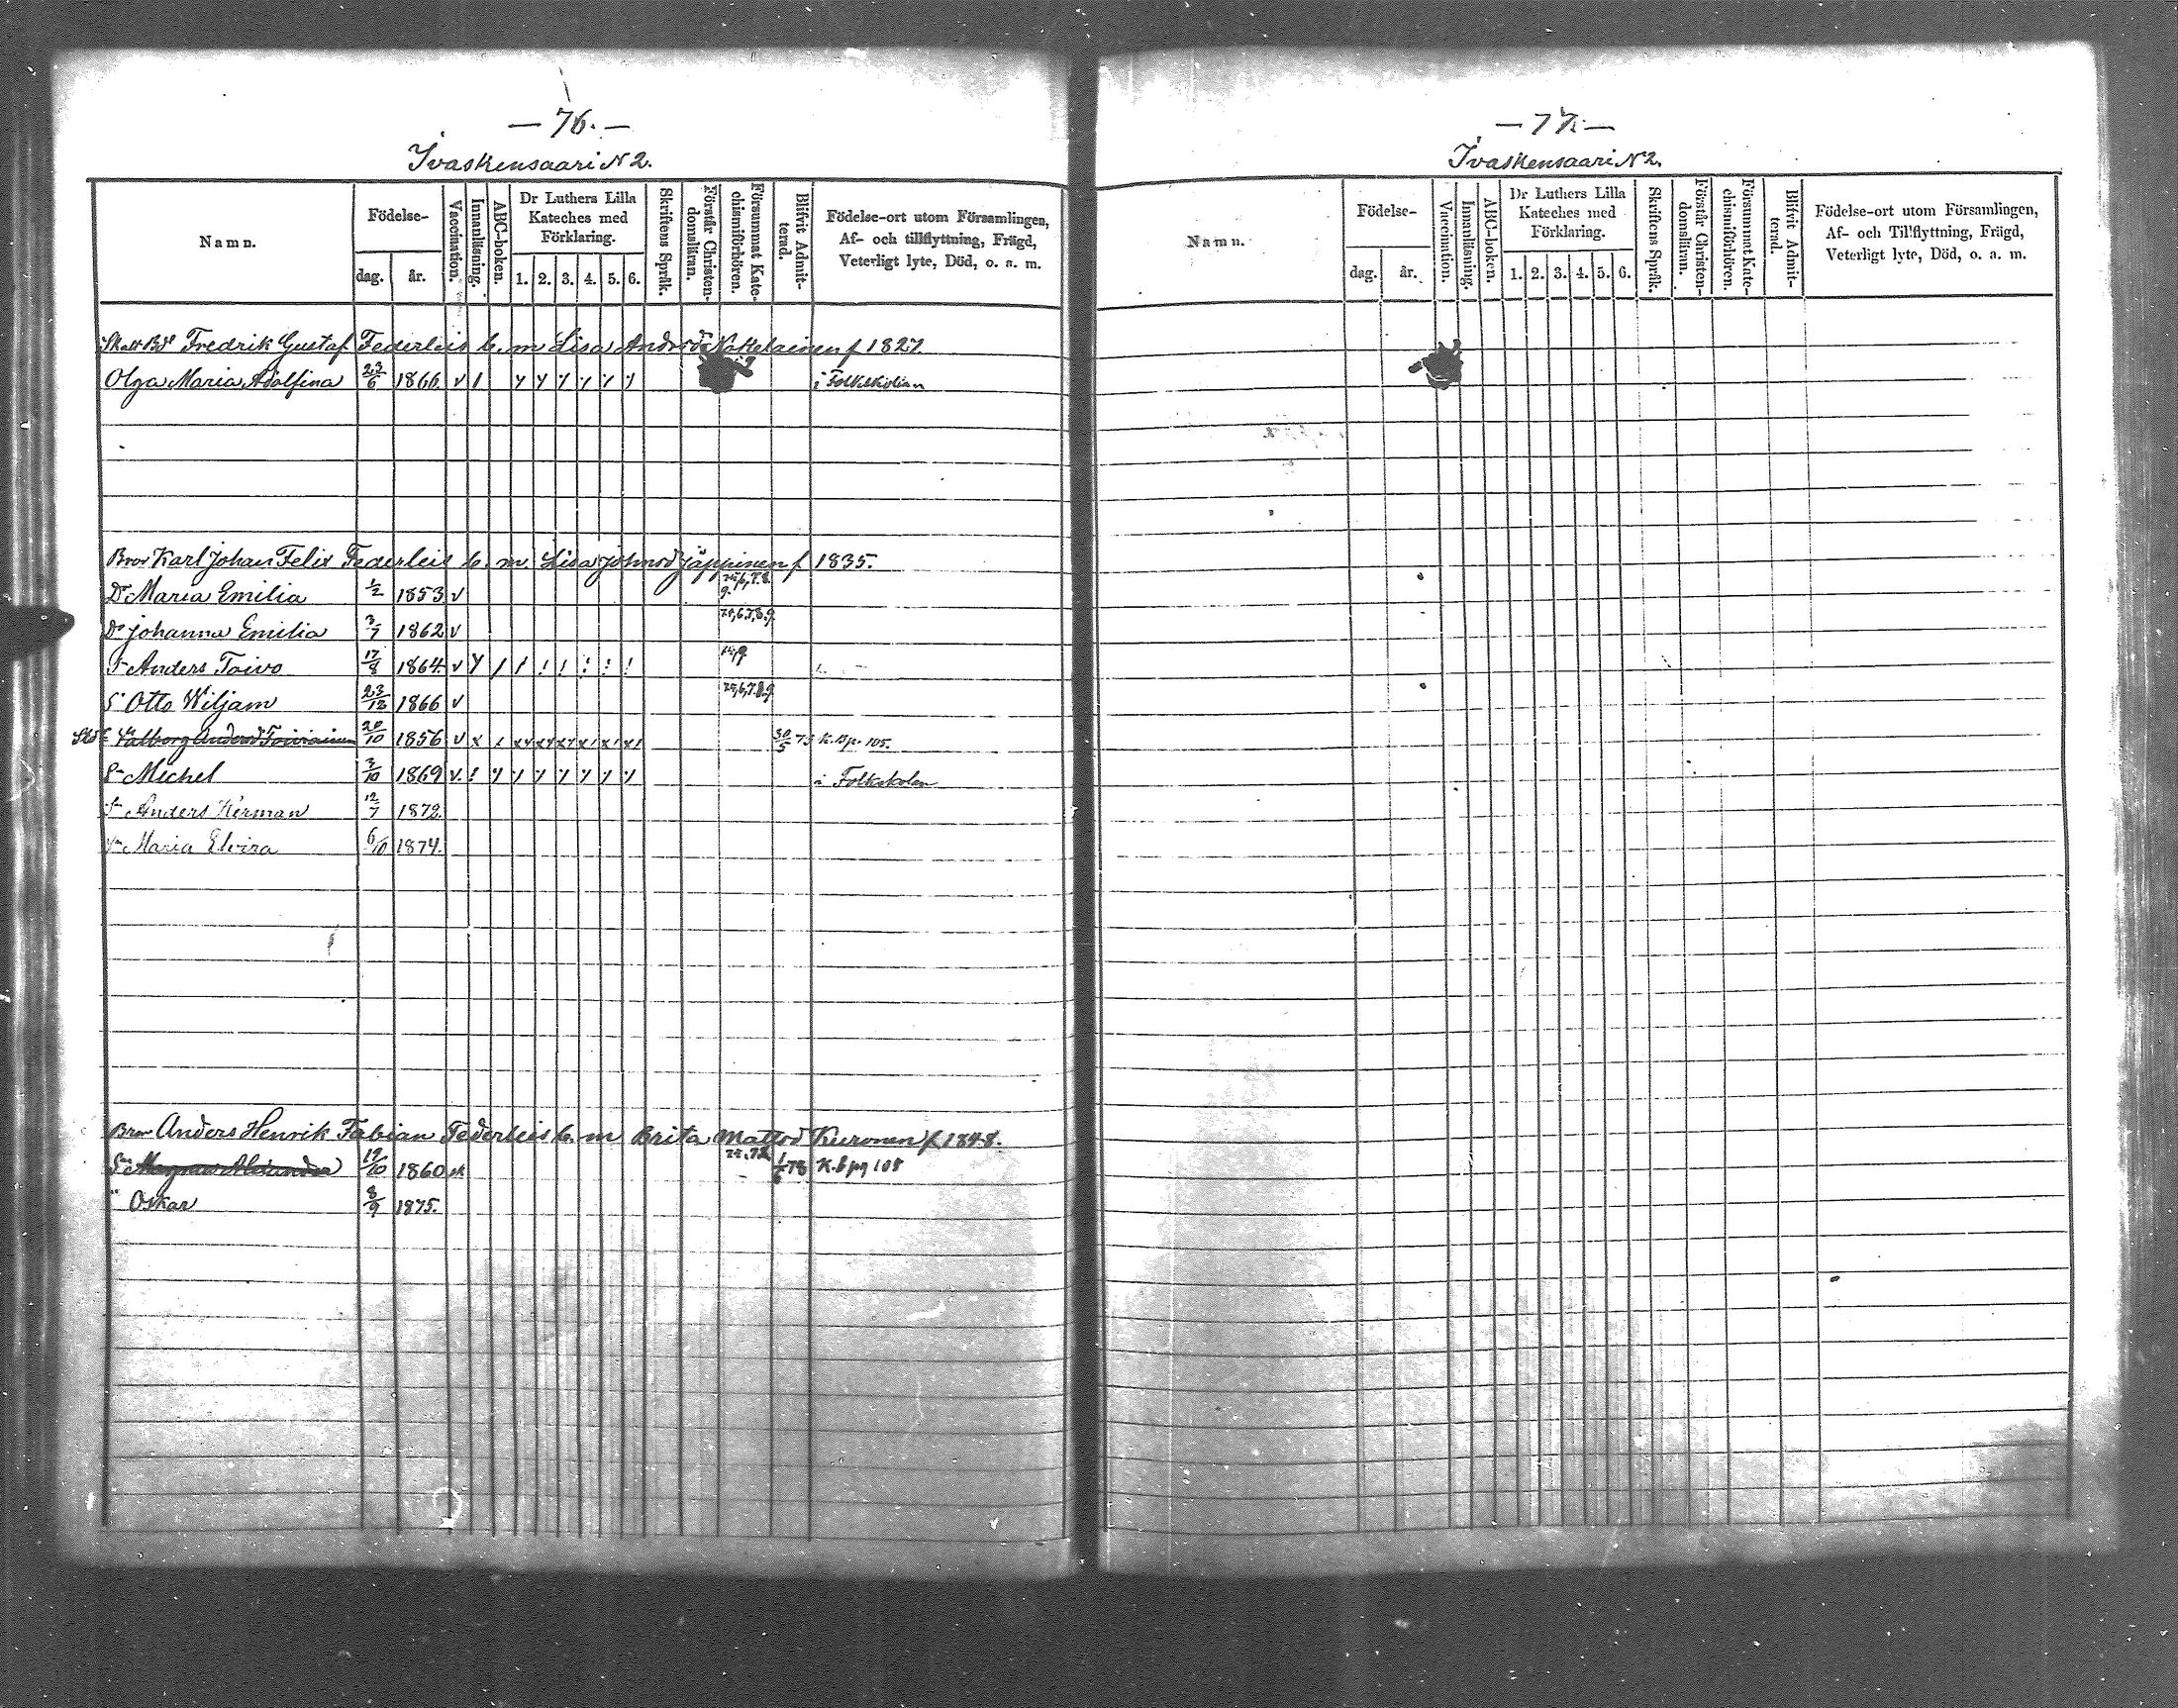 — 76. —
Ivaskensaari N 2.
Namn.
Födelse-
dag.
år.
Vaccination.
Innanläsning.
ABC-boken.
Dr Luthers Lilla
Kateches med
Förklaring.
1. 2. 3. 4. 5. 6.
Skriftens Språk.
Förstår Christen-
domsläran.
Försummat Kate-
chismiförhören.
Blifvit Admit-
terad.
Födelse-ort utom Församlingen,
Af- och tillflyttning, Frägd,
Veterligt lyte, Död, o. a. m.
Fredrik Gustaf Federleis b. m Lisa Andersd f 1827
Olga Maria Adolfina 23/6 1866 i Folkskolan
Bror Karl Johan Felix Federleis b. m. Lisa Johnsd Jäppinen f 1835.
Dr Maria Emilia 1/2 1853 v 75,6,7,8,9.
Dr Johanna Emilia 3/7 1862 v 75,6,7,8,9.
Sn Anders Toivo 17/8 1864. v
Sn Otto Wiljam 23/12 1866 v 75,6,7,8,9.
Valborg Andersd Toivainen 20/10 1856 v 30/5 75 K. B p. 105.
Sn Michel 3/10 1869 v. i Folkskolan
Sn Anders Herman 12/7 1872.
Maria Elvira 6/10 1874.
Bror Anders Henrik Fabian Federleis b. m Brita Mattsd Kuronen f 1848.
Sn Magnus Alexander 19/10 1860 78 K. b pg 108
" Oskar 8/9 1875.
— 77. —
Ivaskensaari N 2.
Namn.
Födelse-
dag.
år.
Vaccination.
Innanläsning.
ABC-boken.
Dr Luthers Lilla
Kateches med
Förklaring.
1. 2. 3. 4. 5. 6.
Skriftens Språk.
Förstår Christen-
domsläran.
Försummat Kate-
chismiförhören.
Blifvit Admit-
terad.
Födelse-ort utom Församlingen,
Af- och Tillflyttning, Frägd,
Veterligt lyte, Död, o. a. m.